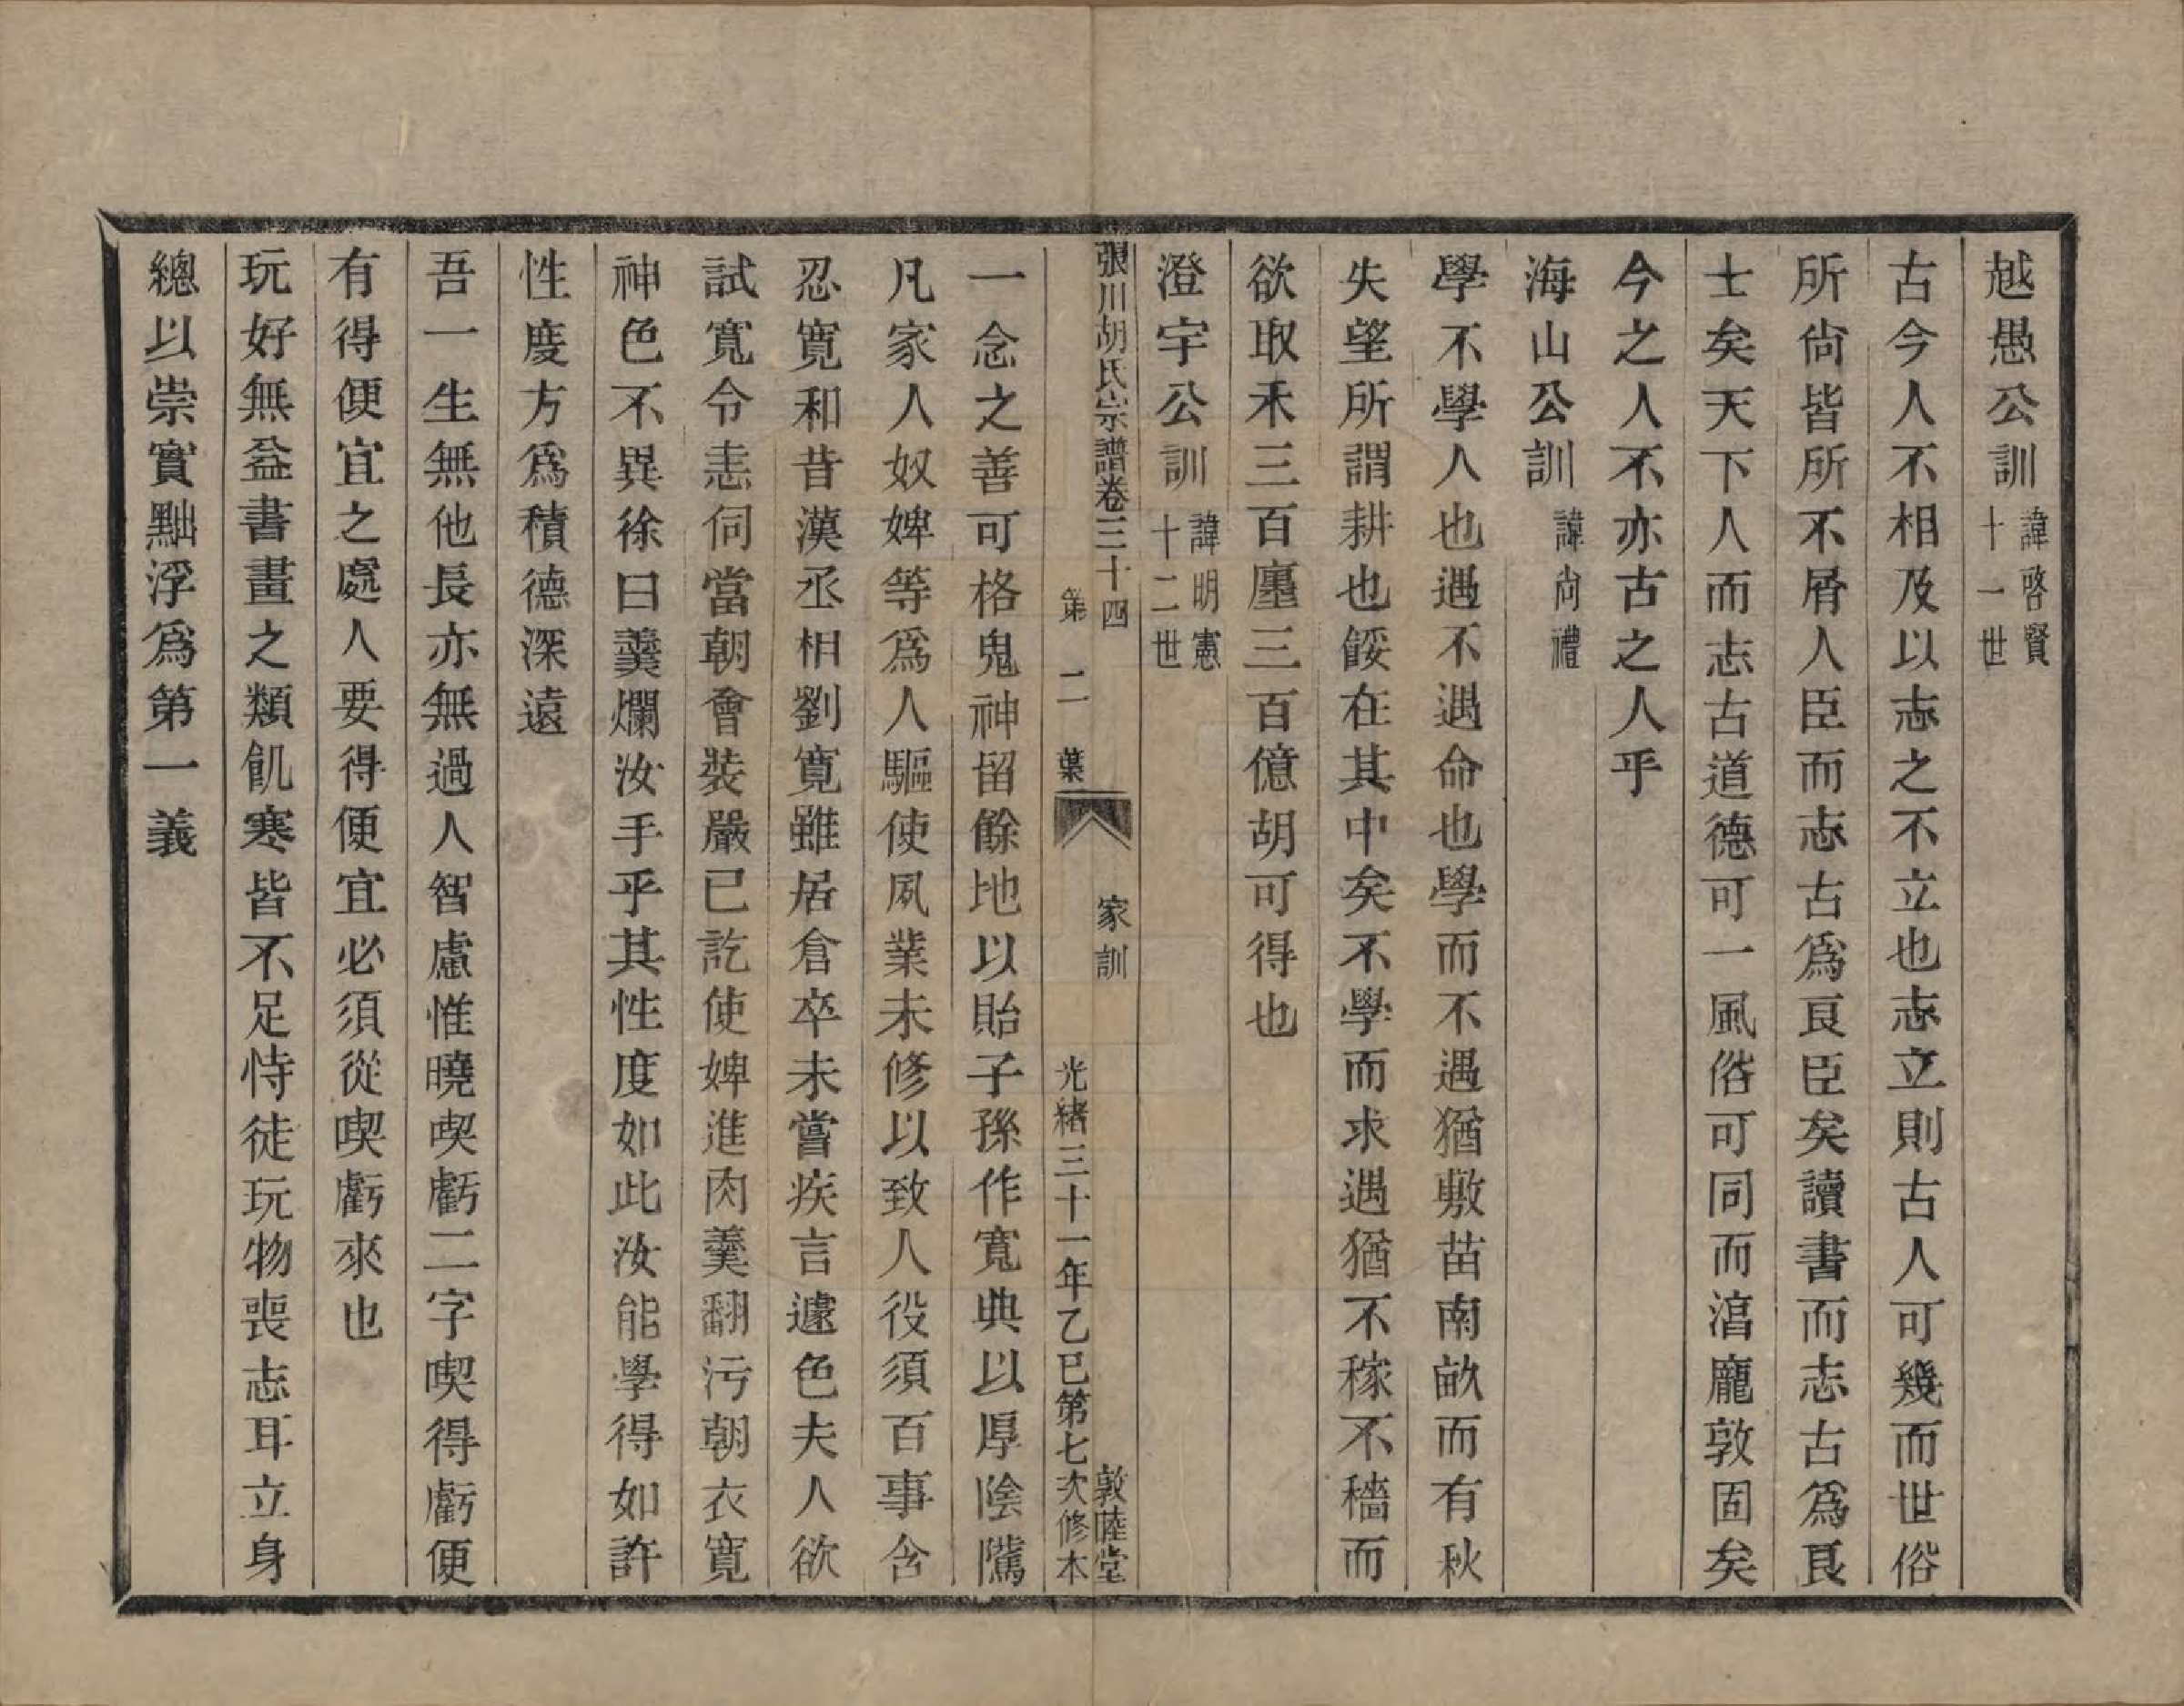 越愚公訓 諱啓賢 十一世
古今人不相及以志之不立也志立則古人可幾而世俗
所尚皆所不屑人臣而志古爲良臣矣讀書而志古爲良
士矣天下人而志古道德可一風俗可同而湻龐敦固矣
今之人不亦古之人乎
海山公訓 諱尚禮
學不學人也遇不遇命也學而不遇猶敷苗南畝而有秋
失望所謂耕也餒在其中矣不學而求遇猶不稼不穡而
欲取禾三百廛三百億胡可得也
澄宇公訓 諱明憲 十二世
張川胡氏宗譜卷三十四 家訓 敦睦堂
第二葉 光緒三十一年乙巳第七次修本
一念之善可格鬼神留餘地以貽子孫作寬典以厚陰騭
凡家人奴婢等爲人驅使夙業未修以致人役須百事含
忍寬和昔漢丞相劉寬雖居倉卒未嘗疾言遽色夫人欲
試寬令恚伺當朝會裝嚴已訖使婢進肉羹翻污朝衣寬
神色不異徐曰羹爛汝手乎其性度如此汝能學得如許
性度方爲積德深遠
吾一生無他長亦無過人智慮惟曉喫虧二字喫得虧便
有得便宜之處人要得便宜必須從喫虧來也
玩好無益書畫之類飢寒皆不足恃徒玩物喪志耳立身
總以崇實黜浮爲第一義